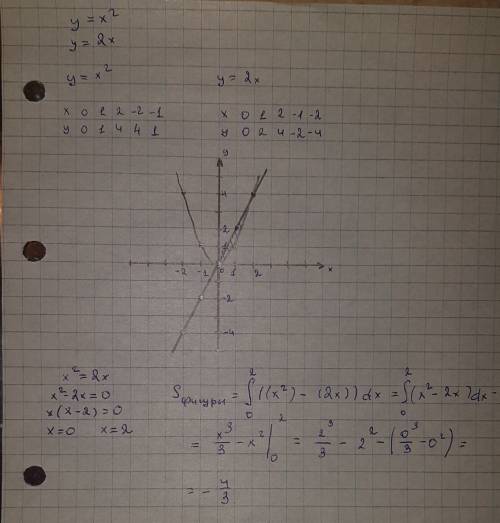 y = x²
y = 2x
y = x²
y = 2x
x 0 1 2 -2 -1
y 0 1 4 4 1
x 0 1 2 -1 -2
y 0 2 4 -2 -4
y
4
2
1
-2 -1 0 1 2 x
-2
-4
x² = 2x
x² - 2x = 0
x(x-2) = 0
x = 0 x = 2
S фигуры = ∫₀² ((x²) - (2x)) dx = ∫₀² (x² - 2x) dx -
= x³/3 - x² |₀² = 2³/3 - 2² - (0³/3 - 0²) =
= - 4/3